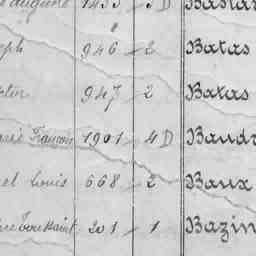 1433 - 3 D Bastar
eph 946 - 2 Batas
tin 947 - 2 Batas
arie François 1901 - 4 D Baudr
et Louis 668 - 2 Baux
re Toussaint 201 - 1 Bazin